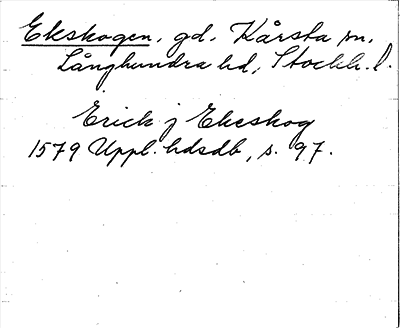 Ekskogen, gd. Kårsta sn,
Långhundra hd, Stockh. l.
Erick j Ekeskog
1579 Uppl. hdsdb, s. 97.